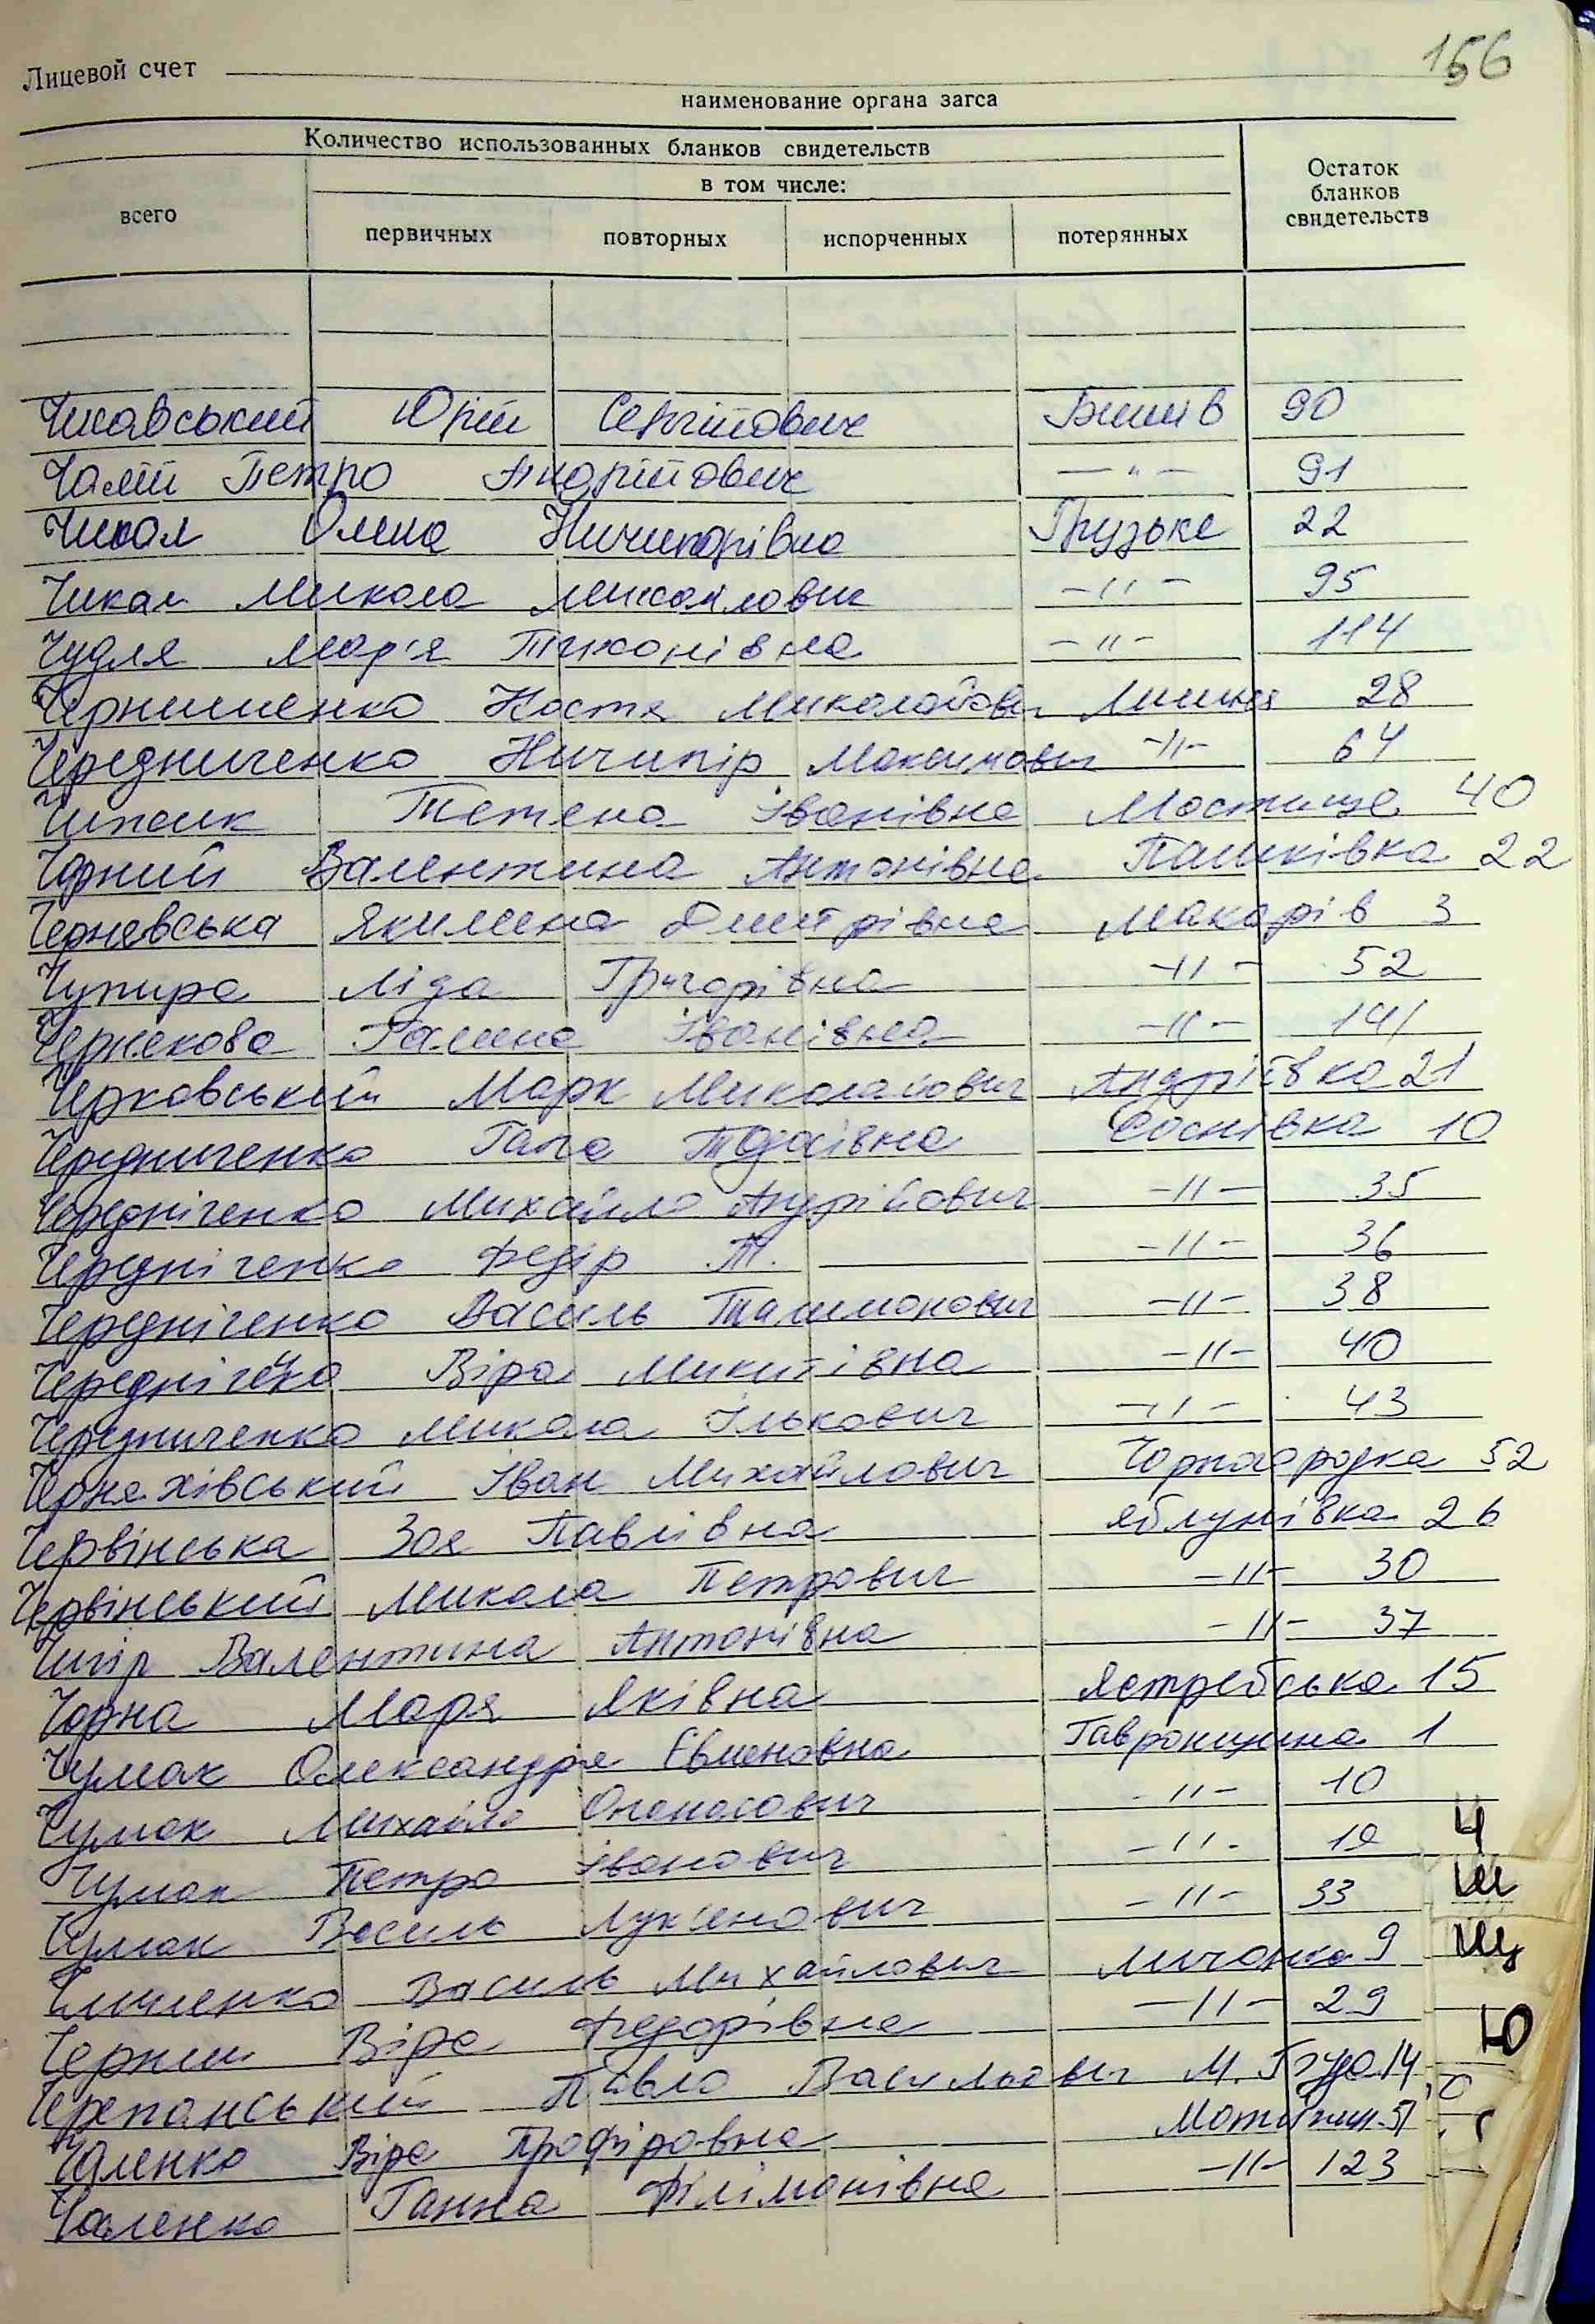 156
Лицевой счет
наименование органа загса
Количество использованных бланков свидетельств
в том числе:
всего первичных повторных испорченных потерянных Остаток бланков свидетельств
Юрій Сергійович Бишів 90
Чалій Петро Андрійович —"— 91
Чикал Олена Ничипорівна Грузьке 22
Чикал Микола Михайлович -"- 95
Чудля Мар'я Тихонівна -"- 114
Чернишенко Костя Миколайович Липівка 28
Чередниченко Ничипір Максимович -"- 64
Тетена Іванівна Мостище 40
Чорний Валентина Антонівна Пашківка 22
Чернявська Якилина Дмитрівна Макарів 3
Чупира Ліда Григорівна -"- 52
Чернякова Галина Іванівна -"- 141
Марк Миколайович Андріївка 21
Чередниченко Соснівка 10
Чередніченко Михайло Андрійович -"- 35
Чередніченко Федір Т. -"- 36
Чередніченко Василь -"- 38
Чередніченко Віра Микитівна -"- 40
Чередниченко Микола Ількович -"- 43
Черняхівський Іван Михайлович Чорногородка 52
Червінська Зоя Павлівна Яблунівка 26
Червінський Микола Петрович -"- 30
Чигір Валентина Антонівна -"- 37
Чорна Маря Яківна Ястребська 15
Чумак Олександря Гавронщина 1
Чумак Михайло Опанасович -"- 10
Чумак Петро Іванович -"-
Чумак Василь Лук'янович -"- 33
Василь Михайлович Личанка 9
Черниш Віра Федорівна —"- 29
Черепанський Павло Васильович М. 14
Чаленко Віра Профіровна 51
Чаленко Ганна Філімонівна -"- 123
Ч
Ш
Щ
Ю